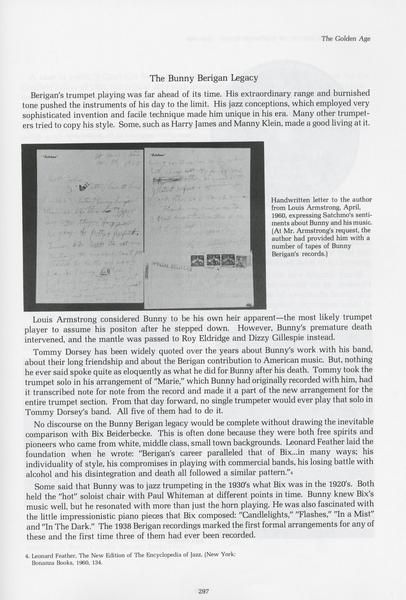 The Golden Age
The Bunny Berigan Legacy
Berigan's trumpet playing was far ahead of its time. His extraordinary range and burnished
tone pushed the instruments of his day to the limit. His jazz conceptions, which employed very
sophisticated invention and facile technique made him unique in his era. Many other trumpet-
ers tried to copy his style. Some, such as Harry James and Manny Klein, made a good living at it.
Handwritten letter to the author
from Louis Armstrong, April,
1960, expressing Satchmo's senti-
ments about Bunny and his music.
(At Mr. Armstrong's request, the
author had provided him with a
number of tapes of Bunny
Berigan's records.)
Louis Armstrong considered Bunny to be his own heir apparent—the most likely trumpet
player to assume his positon after he stepped down. However, Bunny's premature death
intervened, and the mantle was passed to Roy Eldridge and Dizzy Gillespie instead.
Tommy Dorsey has been widely quoted over the years about Bunny's work with his band,
about their long friendship and about the Berigan contribution to American music. But, nothing
he ever said spoke quite as eloquently as what he did for Bunny after his death. Tommy took the
trumpet solo in his arrangement of "Marie," which Bunny had originally recorded with him, had
it transcribed note for note from the record and made it a part of the new arrangement for the
entire trumpet section. From that day forward, no single trumpeter would ever play that solo in
Tommy Dorsey's band. All five of them had to do it.
No discourse on the Bunny Berigan legacy would be complete without drawing the inevitable
comparison with Bix Beiderbecke. This is often done because they were both free spirits and
pioneers who came from white, middle class, small town backgrounds. Leonard Feather laid the
foundation when he wrote: "Berigan's career paralleled that of Bix...in many ways; his
individuality of style, his compromises in playing with commercial bands, his losing battle with
alcohol and his disintegration and death all followed a similar pattern."4
Some said that Bunny was to jazz trumpeting in the 1930's what Bix was in the 1920's. Both
held the "hot" soloist chair with Paul Whiteman at different points in time. Bunny knew Bix's
music well, but he resonated with more than just the horn playing. He was also fascinated with
the little impressionistic piano pieces that Bix composed: "Candlelights," "Flashes," "In a Mist"
and "In The Dark." The 1938 Berigan recordings marked the first formal arrangements for any of
these and the first time three of them had ever been recorded.
4. Leonard Feather, The New Edition of The Encyclopedia of Jazz, (New York:
Bonanza Books, 1960, 134.
297